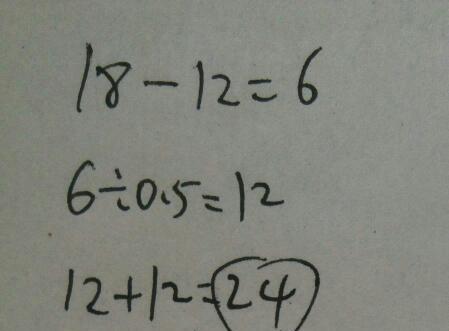 18-12=6
6÷0.5=12
12+12=24